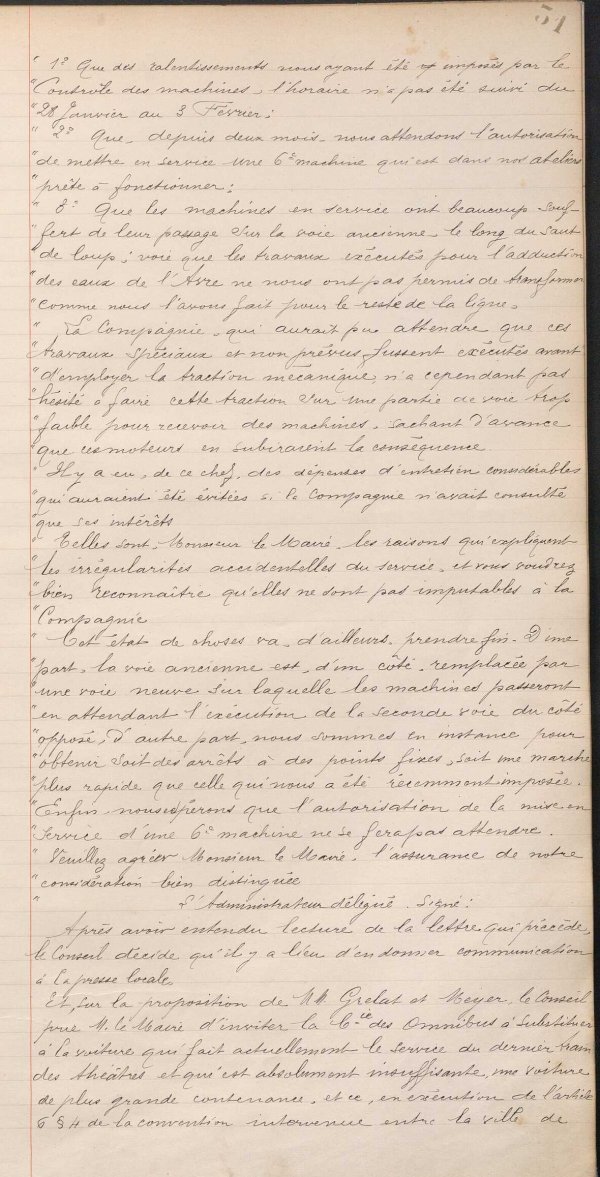 51
" 1° Que des ralentissements nous ayant été imposés par le
"Contrôle des machines, l'horaire n'a pas été suivi du
"28 Janvier au 3 Février;
" 2° Que, depuis deux mois, nous attendons l'autorisation
"de mettre en service une 6e machine qui est dans nos ateliers
"prête à fonctionner;
" 3° Que les machines en service ont beaucoup souf-
"fert de leur passage sur la voie ancienne le long du Saut
"de loup; voie que les travaux exécutés pour l'adduction
"des eaux de l'Avre ne nous ont pas permis de transformer
"comme nous l'avons fait pour le reste de la ligne.
" La Compagnie, qui aurait pu attendre que ces
"travaux spéciaux et non prévus fussent exécutés avant
"d'employer la traction mécanique n'a cependant pas
"hésité à faire cette traction sur une partie de voie trop
"faible pour recevoir des machines, sachant d'avance
"que ces moteurs en subiraient la conséquence
" Il y a eu, de ce chef, des dépenses d'entretien considérables
"qui auraient été évitées si la Compagnie n'avait consulté
"que ses intérêts
" Telles sont, Monsieur le Maire, les raisons qui expliquent
"les irrégularités accidentelles du service, et vous voudrez
"bien reconnaître qu'elles ne sont pas imputables à la
"Compagnie
" Cet état de choses va, d'ailleurs, prendre fin. D'une
"part, la voie ancienne est, d'un côté, remplacée par
"une voie neuve sur laquelle les machines passeront
"en attendant l'exécution de la seconde voie du côté
"opposé; d'autre part, nous sommes en instance pour
"obtenir soit des arrêts à des points fixes, soit une marche
"plus rapide que celle qui nous a été récemment imposée.
"Enfin, nous espérons que l'autorisation de la mise en
"service d'une 6e machine ne se fera pas attendre.
" Veuillez agréer Monsieur le Maire, l'assurance de notre
"considération bien distinguée
" L'Administrateur délégué. Signé:
Après avoir entendu lecture de la lettre qui précède,
le Conseil décide qu'il y a lieu d'en donner communication
à la presse locale.
Et, sur la proposition de MM. Grelat et Meyer, le Conseil
prie M. le Maire d'inviter la Cie des Omnibus à substituer
à la voiture qui fait actuellement le service du dernier train
des théâtres et qui est absolument insuffisante, une voiture
de plus grande contenance, et ce, en exécution de l'article
6 § 4 de la convention intervenue entre la ville de